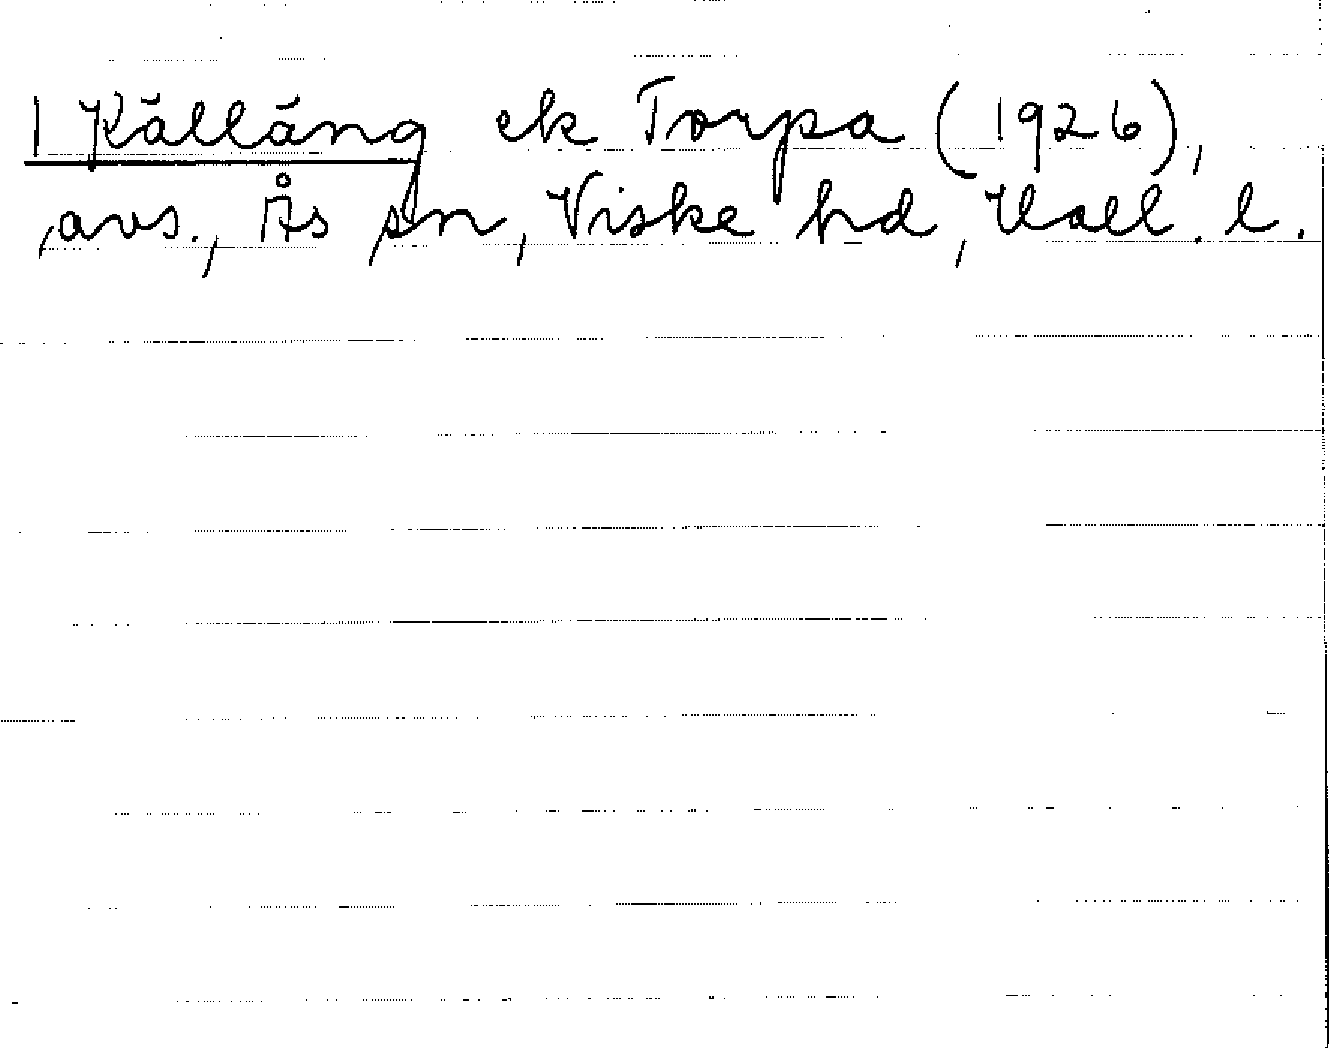 1 Källäng ek Torpa (1926),
avs., Ås sn, Viske hd, Hall. l.